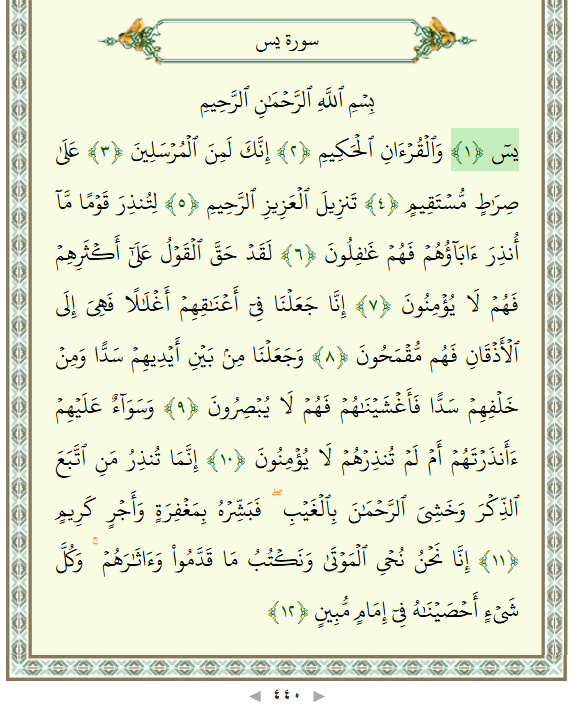 سورة يس
بِسۡمِ ٱللَّهِ ٱلرَّحۡمَٰنِ ٱلرَّحِيمِ
يسٓ ﴿١﴾ وَٱلۡقُرۡءَانِ ٱلۡحَكِيمِ ﴿٢﴾ إِنَّكَ لَمِنَ ٱلۡمُرۡسَلِينَ ﴿٣﴾ عَلَىٰ
صِرَٰطٖ مُّسۡتَقِيمٖ ﴿٤﴾ تَنزِيلَ ٱلۡعَزِيزِ ٱلرَّحِيمِ ﴿٥﴾ لِتُنذِرَ قَوۡمٗا مَّآ
أُنذِرَ ءَابَآؤُهُمۡ فَهُمۡ غَٰفِلُونَ ﴿٦﴾ لَقَدۡ حَقَّ ٱلۡقَوۡلُ عَلَىٰٓ أَكۡثَرِهِمۡ
فَهُمۡ لَا يُؤۡمِنُونَ ﴿٧﴾ إِنَّا جَعَلۡنَا فِيٓ أَعۡنَٰقِهِمۡ أَغۡلَٰلٗا فَهِيَ إِلَى
ٱلۡأَذۡقَانِ فَهُم مُّقۡمَحُونَ ﴿٨﴾ وَجَعَلۡنَا مِنۢ بَيۡنِ أَيۡدِيهِمۡ سَدّٗا وَمِنۡ
خَلۡفِهِمۡ سَدّٗا فَأَغۡشَيۡنَٰهُمۡ فَهُمۡ لَا يُبۡصِرُونَ ﴿٩﴾ وَسَوَآءٌ عَلَيۡهِمۡ
ءَأَنذَرۡتَهُمۡ أَمۡ لَمۡ تُنذِرۡهُمۡ لَا يُؤۡمِنُونَ ﴿١٠﴾ إِنَّمَا تُنذِرُ مَنِ ٱتَّبَعَ
ٱلذِّكۡرَ وَخَشِيَ ٱلرَّحۡمَٰنَ بِٱلۡغَيۡبِۖ فَبَشِّرۡهُ بِمَغۡفِرَةٖ وَأَجۡرٖ كَرِيمٍ
﴿١١﴾ إِنَّا نَحۡنُ نُحۡيِ ٱلۡمَوۡتَىٰ وَنَكۡتُبُ مَا قَدَّمُواْ وَءَاثَٰرَهُمۡۚ وَكُلَّ
شَيۡءٍ أَحۡصَيۡنَٰهُ فِيٓ إِمَامٖ مُّبِينٖ ﴿١٢﴾
٤٤٠